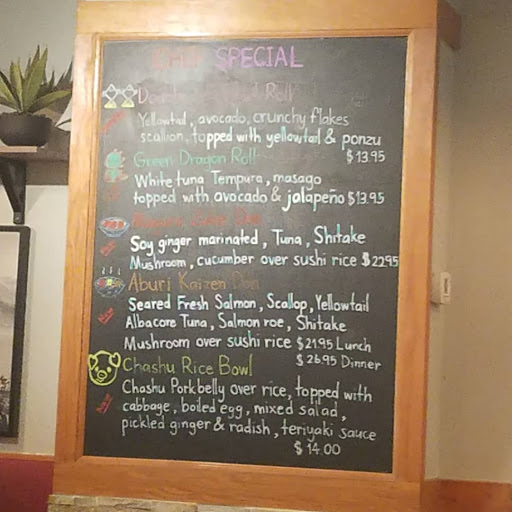 CHEF SPECIAL
Roll
Yellowtail, avocado, crunchy flakes
scallion, topped with yellowtail & ponzu
$13.95
Green Dragon Roll
White tuna Tempura, masago
topped with avocado & jalapeño $13.95
Soy ginger marinated, Tuna, Shitake
Mushroom, cucumber over sushi rice $22.95
Aburi Kaizen Don
Seared Fresh Salmon, Scallop, Yellowtail
Albacore Tuna, Salmon roe, Shitake
Mushroom over sushi rice $21.95 Lunch
$26.95 Dinner
New
Chashu Rice Bowl
Chashu Porkbelly over rice, topped with
cabbage, boiled egg, mixed salad,
pickled ginger & radish, teriyaki sauce
$14.00
New